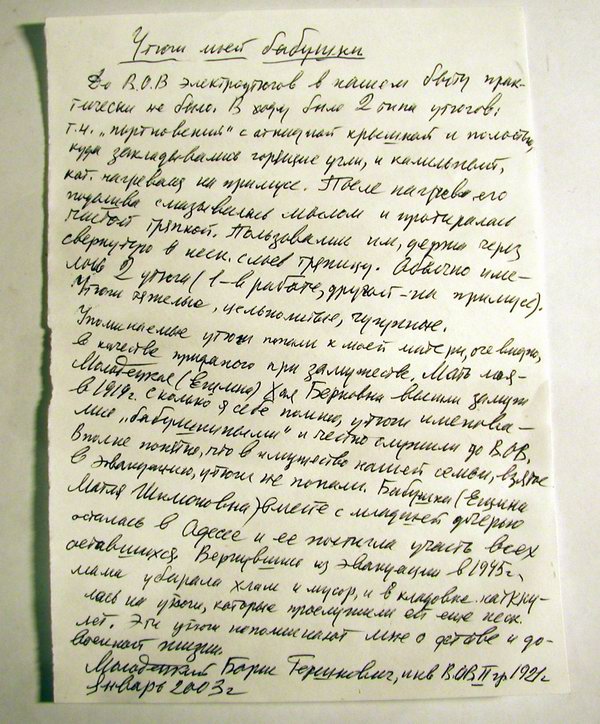 Утюги моей бабушки
До В.О.В электроутюгов в нашем быту прак-
тически не было. В ходу было 2 типа утюгов:
т.н. „портновский“ с откидной крышкой и полостью,
куда закладывались горящие угли, и
кот. нагревался на примусе. После нагрева его
подошва смазывалась маслом и протиралась
чистой тряпкой. Пользовались им, держа через
свернутую в неск. слоев тряпицу. Обычно име-
лось 2 утюга (1-в работе, другой-на примусе).
Утюги тяжелые, цельнолитые, чугунные.
Упоминаемые утюги попали к моей матери, очевидно,
в качестве приданого при замужестве. Мать моя-
Молодецкая (Ецина) Хая Берковна-вышла замуж
в 1919г. Сколько я себя помню, утюги именова-
лись „бабушкиными“ и честно служили до В.О.В.
Вполне понятно, что в имущество нашей семьи, взятое
в эвакуацию, утюги не попали. Бабушка (Ецина
Матля Шимоновна) вместе с младшей дочерью
осталась в Одессе и ее постигла участь всех
оставшихся. Вернувшись из эвакуации в 1945г.,
мама убирала хлам и мусор, и в кладовке наткну-
лась на утюги, которые прослужили ей еще неск.
лет. Эти утюги напоминают мне о детстве и до-
военной жизни.
Молодецкий Борис Гершкович, инв В.О.В II гр 1921г
Январь 2003г